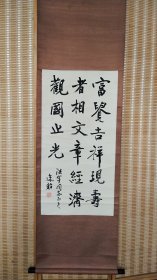 富贵吉祥現壽
者相文章經濟
觀國之光